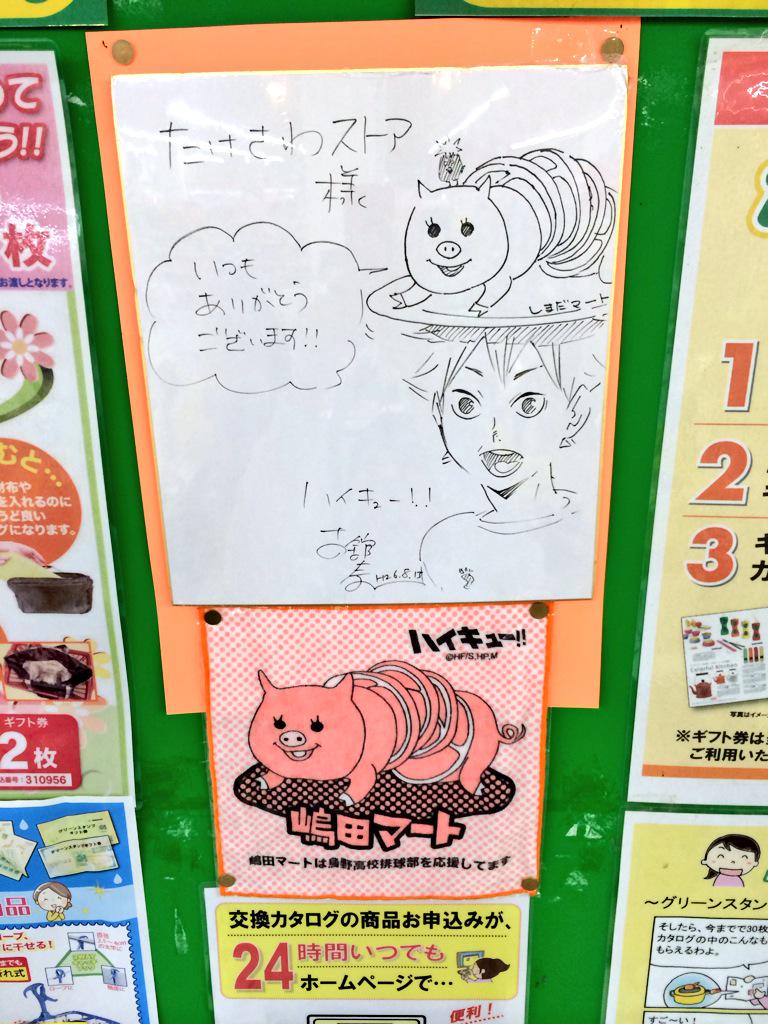 たけさわストア
様
いつも
ありがとう
ございます!!
しまだマート
ハイキュー!!
古舘
春
H26.8.12
ハイキュー!!
©HF/S,HP,M
嶋田マート
嶋田マートは烏野高校排球部を応援してます
交換カタログの商品お申込みが、
24時間いつでも
ホームページで…
便利!
って
う!!
枚
お渡しとなります。
むと…
財布や
を入れるのに
うど良い
グになります。
ギフト券
2枚
込番号:310956
グリーンスタンプ
ギフト券
品
に干せる!
1
2
3
写真はイメー
※ギフト券は
ご利用いた
〜グリーンスタン
そしたら、今まで30枚
カタログの中のこんなも
もらえるわよ。
すご〜い!